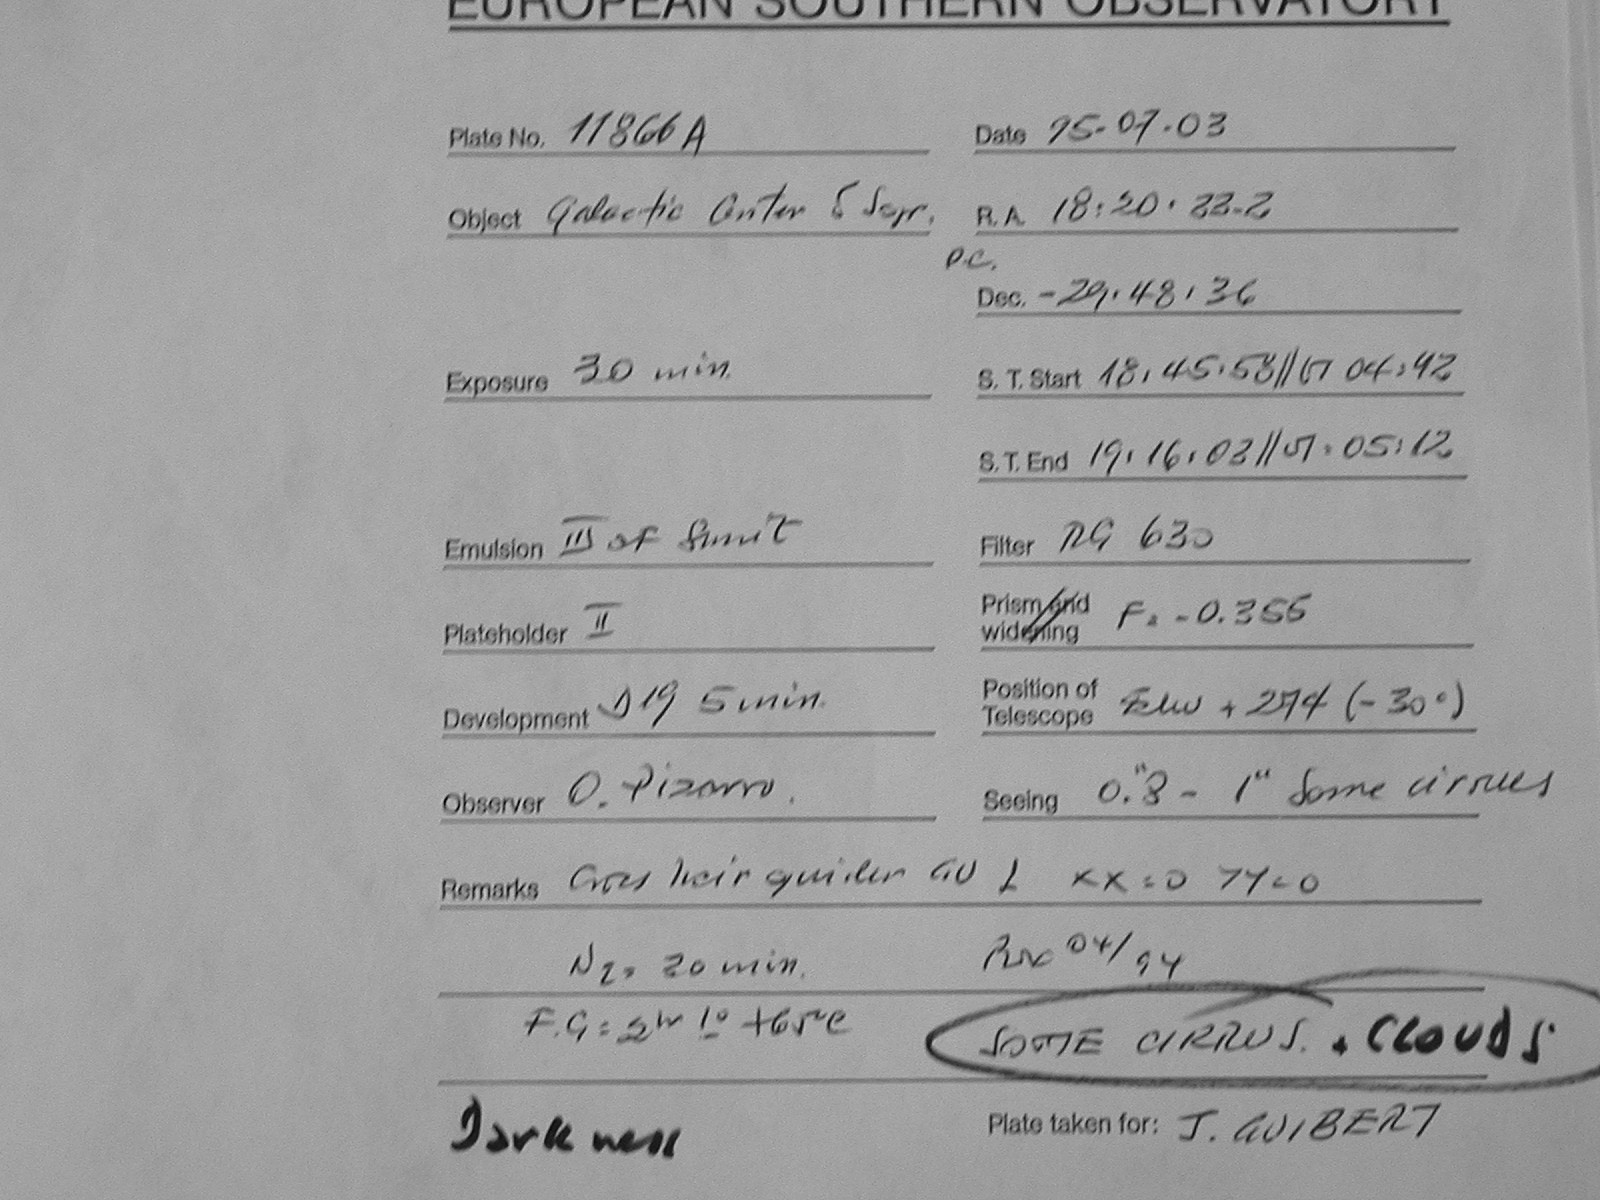 EUROPEAN SOUTHERN OBSERVATORY
Plate No. 11866A Date 95-07-03
Object Galactic Center 5 R.A. 18:20:
P.C.
Dec. -29:48:36
Exposure 30 min. S. T. Start 18:45:58// 04:42
S.T. End 19:16:03// 05:12
Emulsion III Filter RG 630
Plateholder II Prism and widening F= -0.355
Development D19 5 min. Position of Telescope + 274 (-30°)
Observer O. Pizarro. Seeing 0."8 - 1" Some cirrues
Remarks Cross heir guider GU 1 XX=0 YY=0
N2= 20 min. 04/94
F.G= +65°C SOME CIRRUS. + CLOUDS.
Darkness Plate taken for: J. GUIBERT